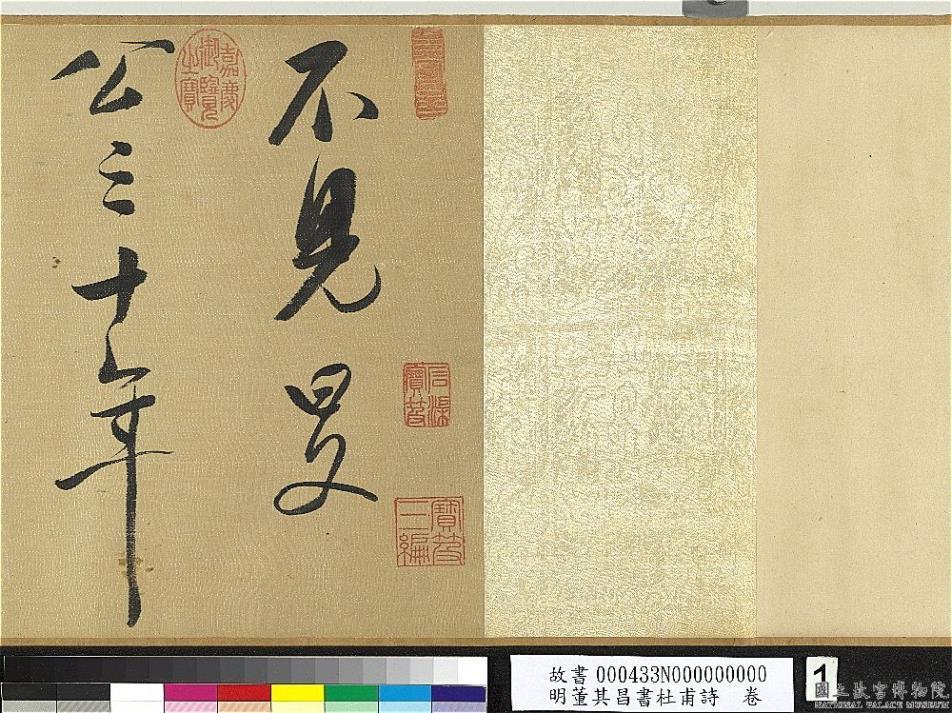 不見旻
公三十年
嘉慶御覽之寶
石渠寶笈
寶笈三編
故書 000433N000000000
明董其昌書杜甫詩 卷
1
國立故宮博物院
NATIONAL PALACE MUSEUM